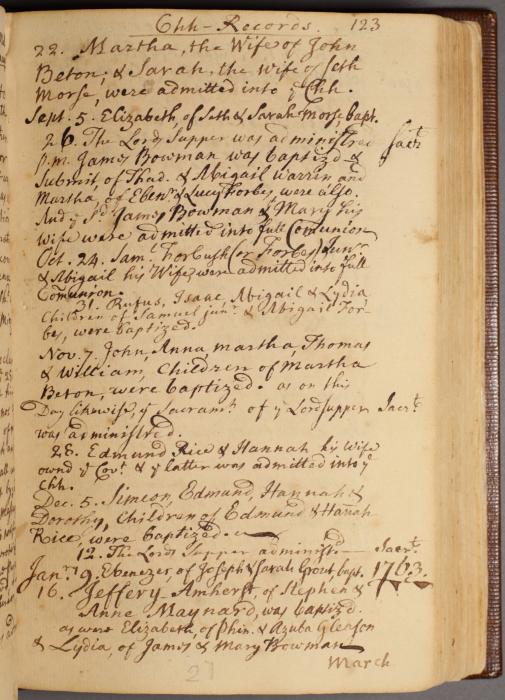 Chh-Records. 123
22. Martha, the Wife of John
Beton; & Sarah, the wife of Seth
Morse, were admitted into y Chh.
Sept. 5. Elizabeth, of Seth & Sarah Morse bapt.
26. The Lords Supper was administred Sacrt.
p.m. James Bowman was baptiz'd &
Submit, of Thad. & Abigail Warren and
Martha, of Ebenr. & Lucy Forbes, were also.
And y sd. James Bowman & Mary his
Wife were admitted into full Comunion
Oct. 24. Sam. Forbush (or Forbes) Junr.
& Abigail his Wife, were admitted into full
Comunion.
31. Rufus, Isaac, Abigail & Lydia
Children of Samuel junr. & Abigail For-
bes, were baptized.
Nov. 7. John, Anna martha, Thomas
& William, Children of Martha
Beton, were baptized. as on this
Day likewise, ye Sacramt. of y Lords supper Sacrt.
was administred.
28. Edmund Rice & Hannah his Wife
ownd ye Covt. & y latter was admitted into ye
Chh.
Dec. 5. Simeon, Edmund, Hannah &
Dorothy, Children of Edmund & Hannah
Rice, were baptized.
12. The Lords Supper administrd Sacrt.
Janry. 9. Ebenezer, of Joseph & Sarah Grout, bapt. 1763.
16. Jeffery-Amherst, of Stephen &
Anne Maynard, was baptiz'd.
as were Elizabeth, of Phin. & Azuba Gleason
& Lydia, of James & Mary Bowman
March
27